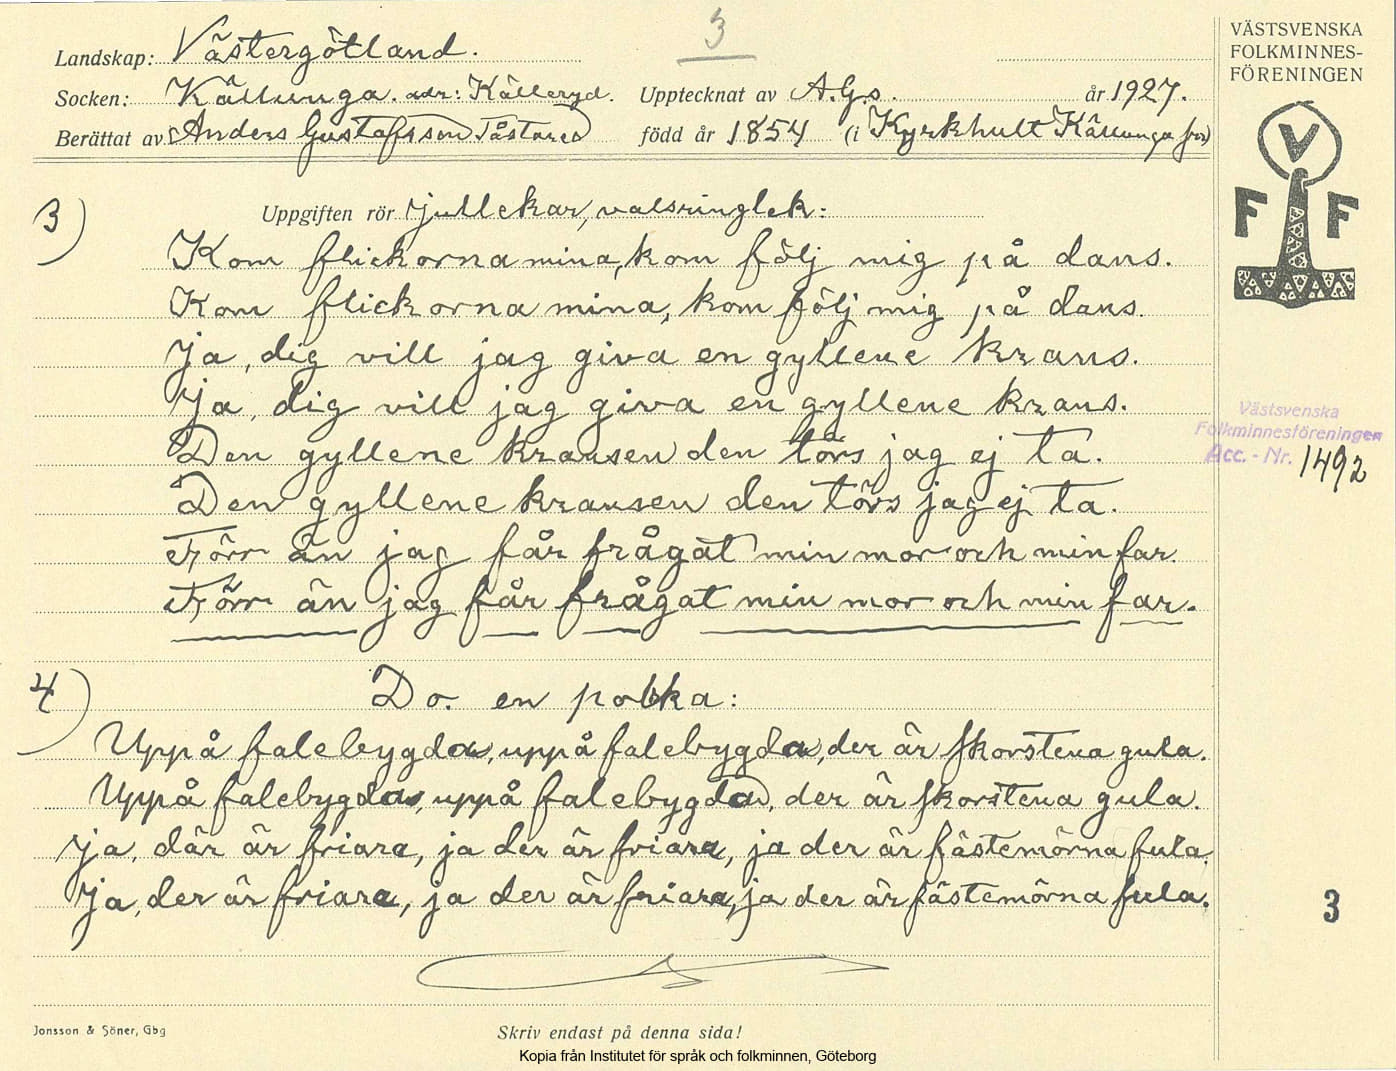 3
Landskap: Västergötland.
Socken: Källunga. adr: Källeryd. Upptecknat av A.G.s. år 1927.
Berättat av Anders Gustafsson Tåstared född år 1854 (i Kyrkhult Källunga
VÄSTSVENSKA
FOLKMINNES-
FÖRENINGEN
V
F F
3) Uppgiften rör jullekar, valsringlek:
Kom flickorna mina, kom följ mig på dans.
Kom flickorna mina, kom följ mig på dans.
Ja, dig vill jag giva en gyllene krans.
Ja, dig vill jag giva en gyllene krans.
Den gyllene kransen den törs jag ej ta.
Den gyllene kransen den törs jag ej ta.
Förr än jag får frågat min mor och min far.
Förr än jag får frågat min mor och min far.
Västsvenska
Folkminnesföreningen
Acc. - Nr. 1492
4) Do. en polka:
Uppå falebygda, uppå falebygda, der är skorstena gula.
Uppå falebygda, uppå falebygda, der är skorstena gula.
Ja, där är friare, ja der är friare, ja der är fästemörna fula.
Ja, der är friare, ja der är friare, ja der är fästemörna fula.
3
Jonsson & Söner, Gbg
Skriv endast på denna sida!
Kopia från Institutet för språk och folkminnen, Göteborg